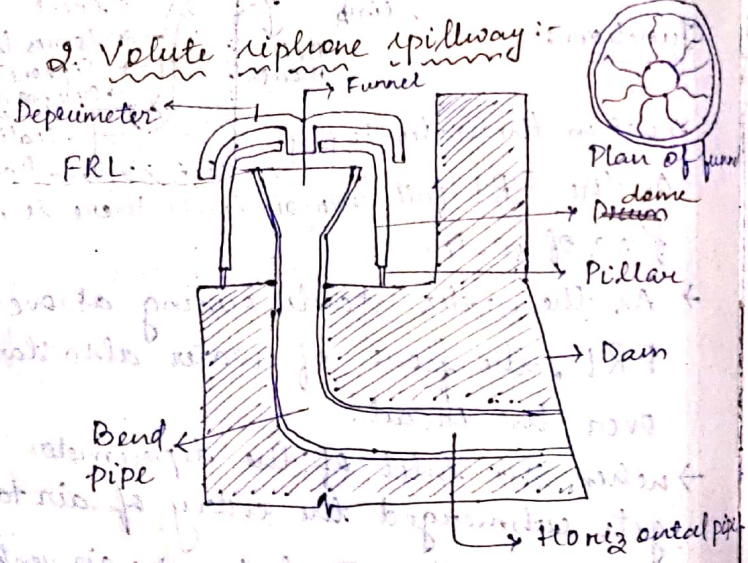 2. Volute siphone spillway :-
Funnel
Deprimeter
FRL
Plan of funnel
dome
Pillar
Dam
Bend
pipe
Horizontal pipe